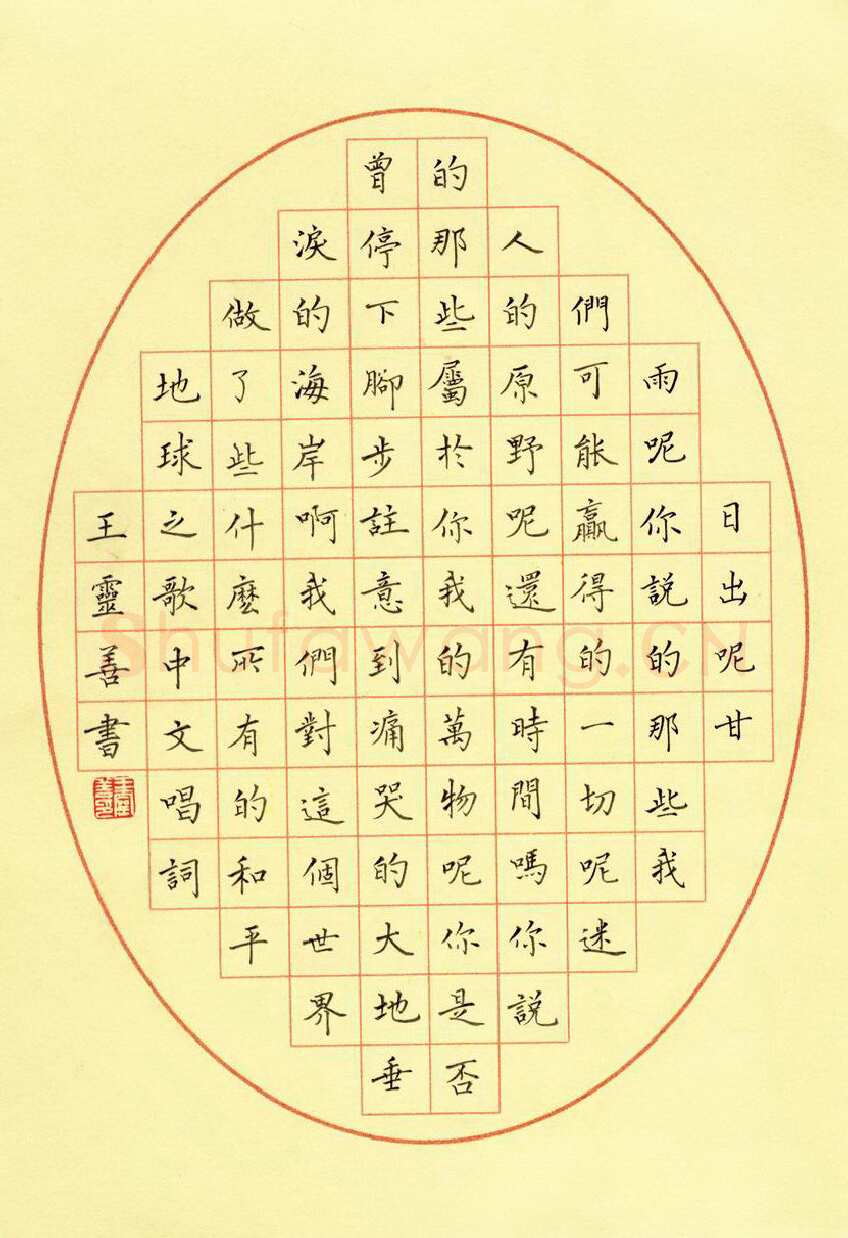 日出呢甘
雨呢你說的那些我
們可能贏得的一切呢迷
人的原野呢還有時間嗎你說
的那些屬於你我的萬物呢你是否
曾停下腳步註意到痛哭的大地垂
淚的海岸啊我們對這個世界
做了些什麼所有的和平
地球之歌中文唱詞
王靈善書
Shufawang.CN